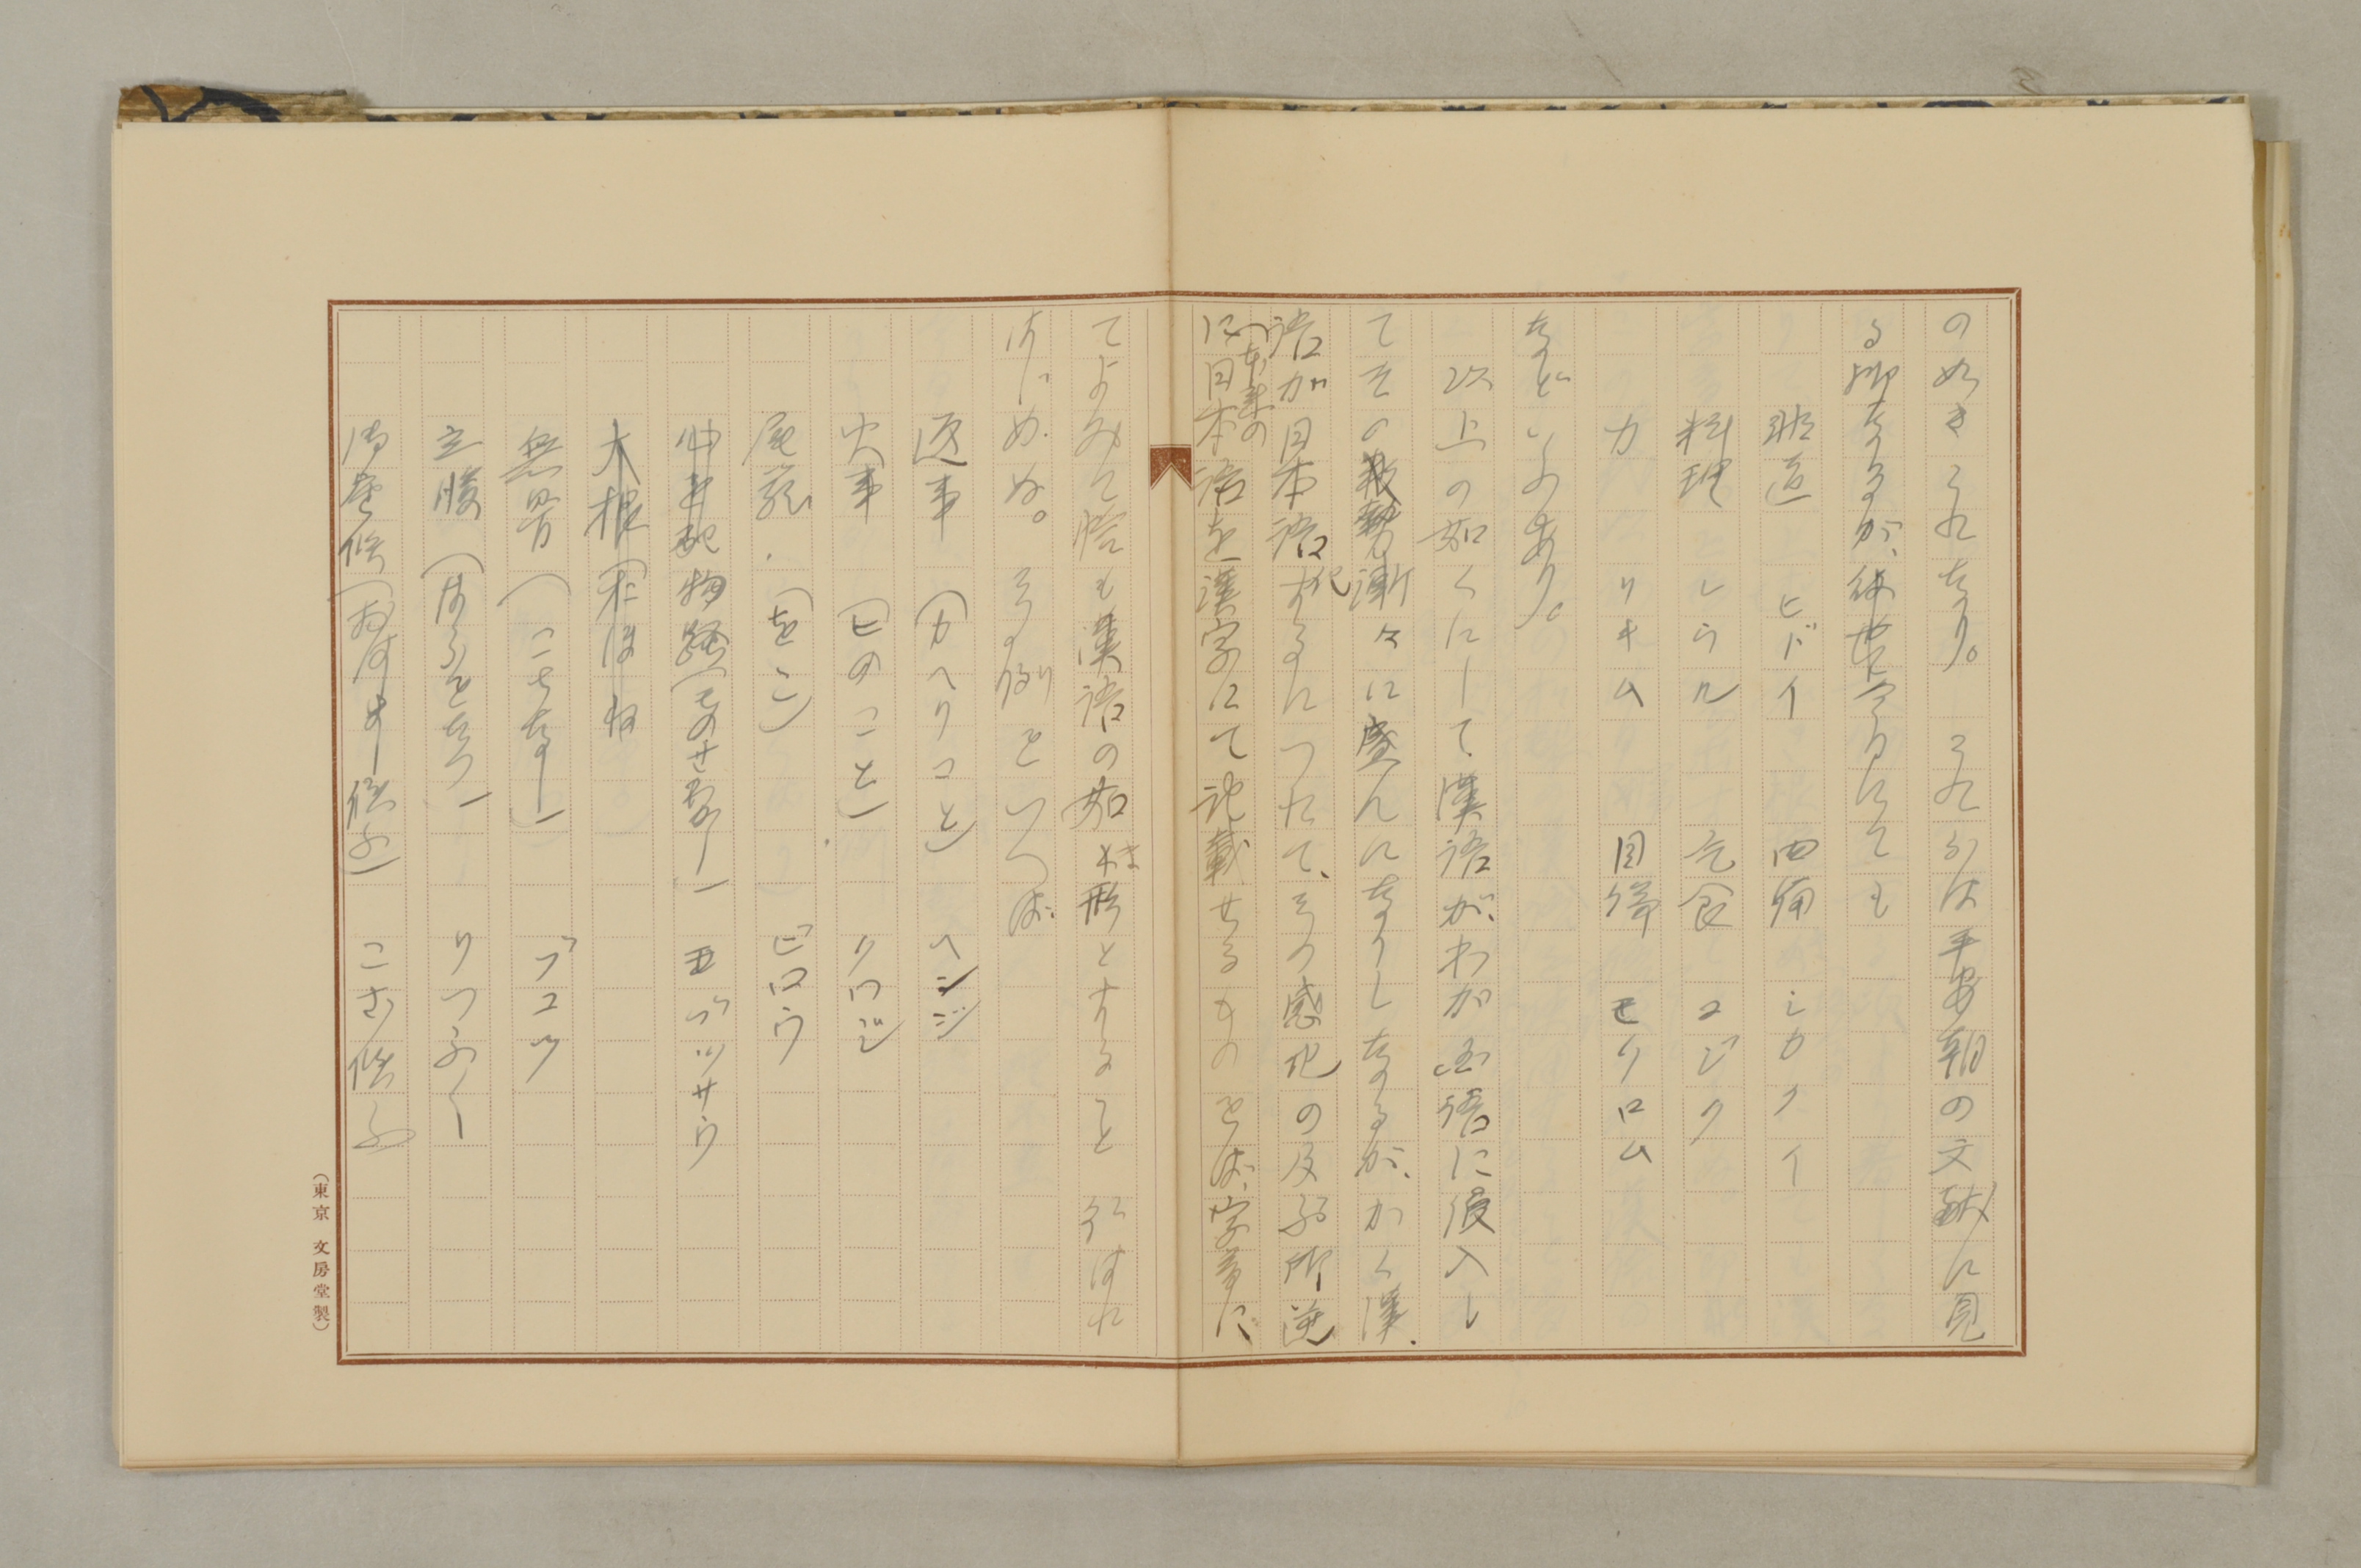 の如きこれなり。これらは平安朝の文献に見
る所なるが、後世今日にても
非道 ヒドイ 四角 シカクイ
料理 レウル 乞食 コジク
力 リキム 目録 モクロム
などいふあり。
以上の如くにして、漢語が、わが国語に侵入し
てその勢漸々に盛んになりしなるが、かく漢
語が日本語化するにつれて、その感化の及ぶ所逆
に(本来の)日本語を漢字にて記載せるものをば、字音に
てよみて恰も漢語の如き形とすること行はれ
はじめぬ。その例をいへば
返事 (カヘリコト) ヘンジ
火事 (ヒのこと) クワジ
尾籠 (をこ) ビロウ
物騒 (ものせわし) モブツサウ
大根 (おほね
無骨 (こちなし) ブコツ
立腹 (はらをたつ) りつふく
御座候 (おはし候ふ) こざ候ふ
(東京 文房堂製)